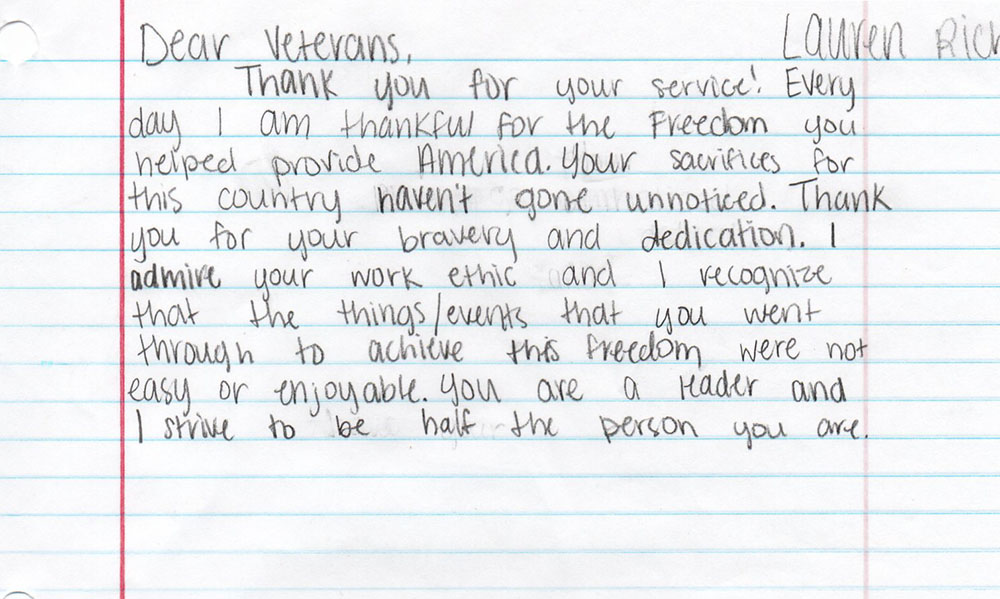 Lauren
Dear Veterans,
Thank you for your service! Every
day I am thankful for the Freedom you
helped provide America. Your sacrifices for
this country haven't gone unnoticed. Thank
you for your bravery and dedication. I
admire your work ethic and I recognize
that the things/events that you went
through to achieve this freedom were not
easy or enjoyable. You are a leader and
I strive to be half the person you are.